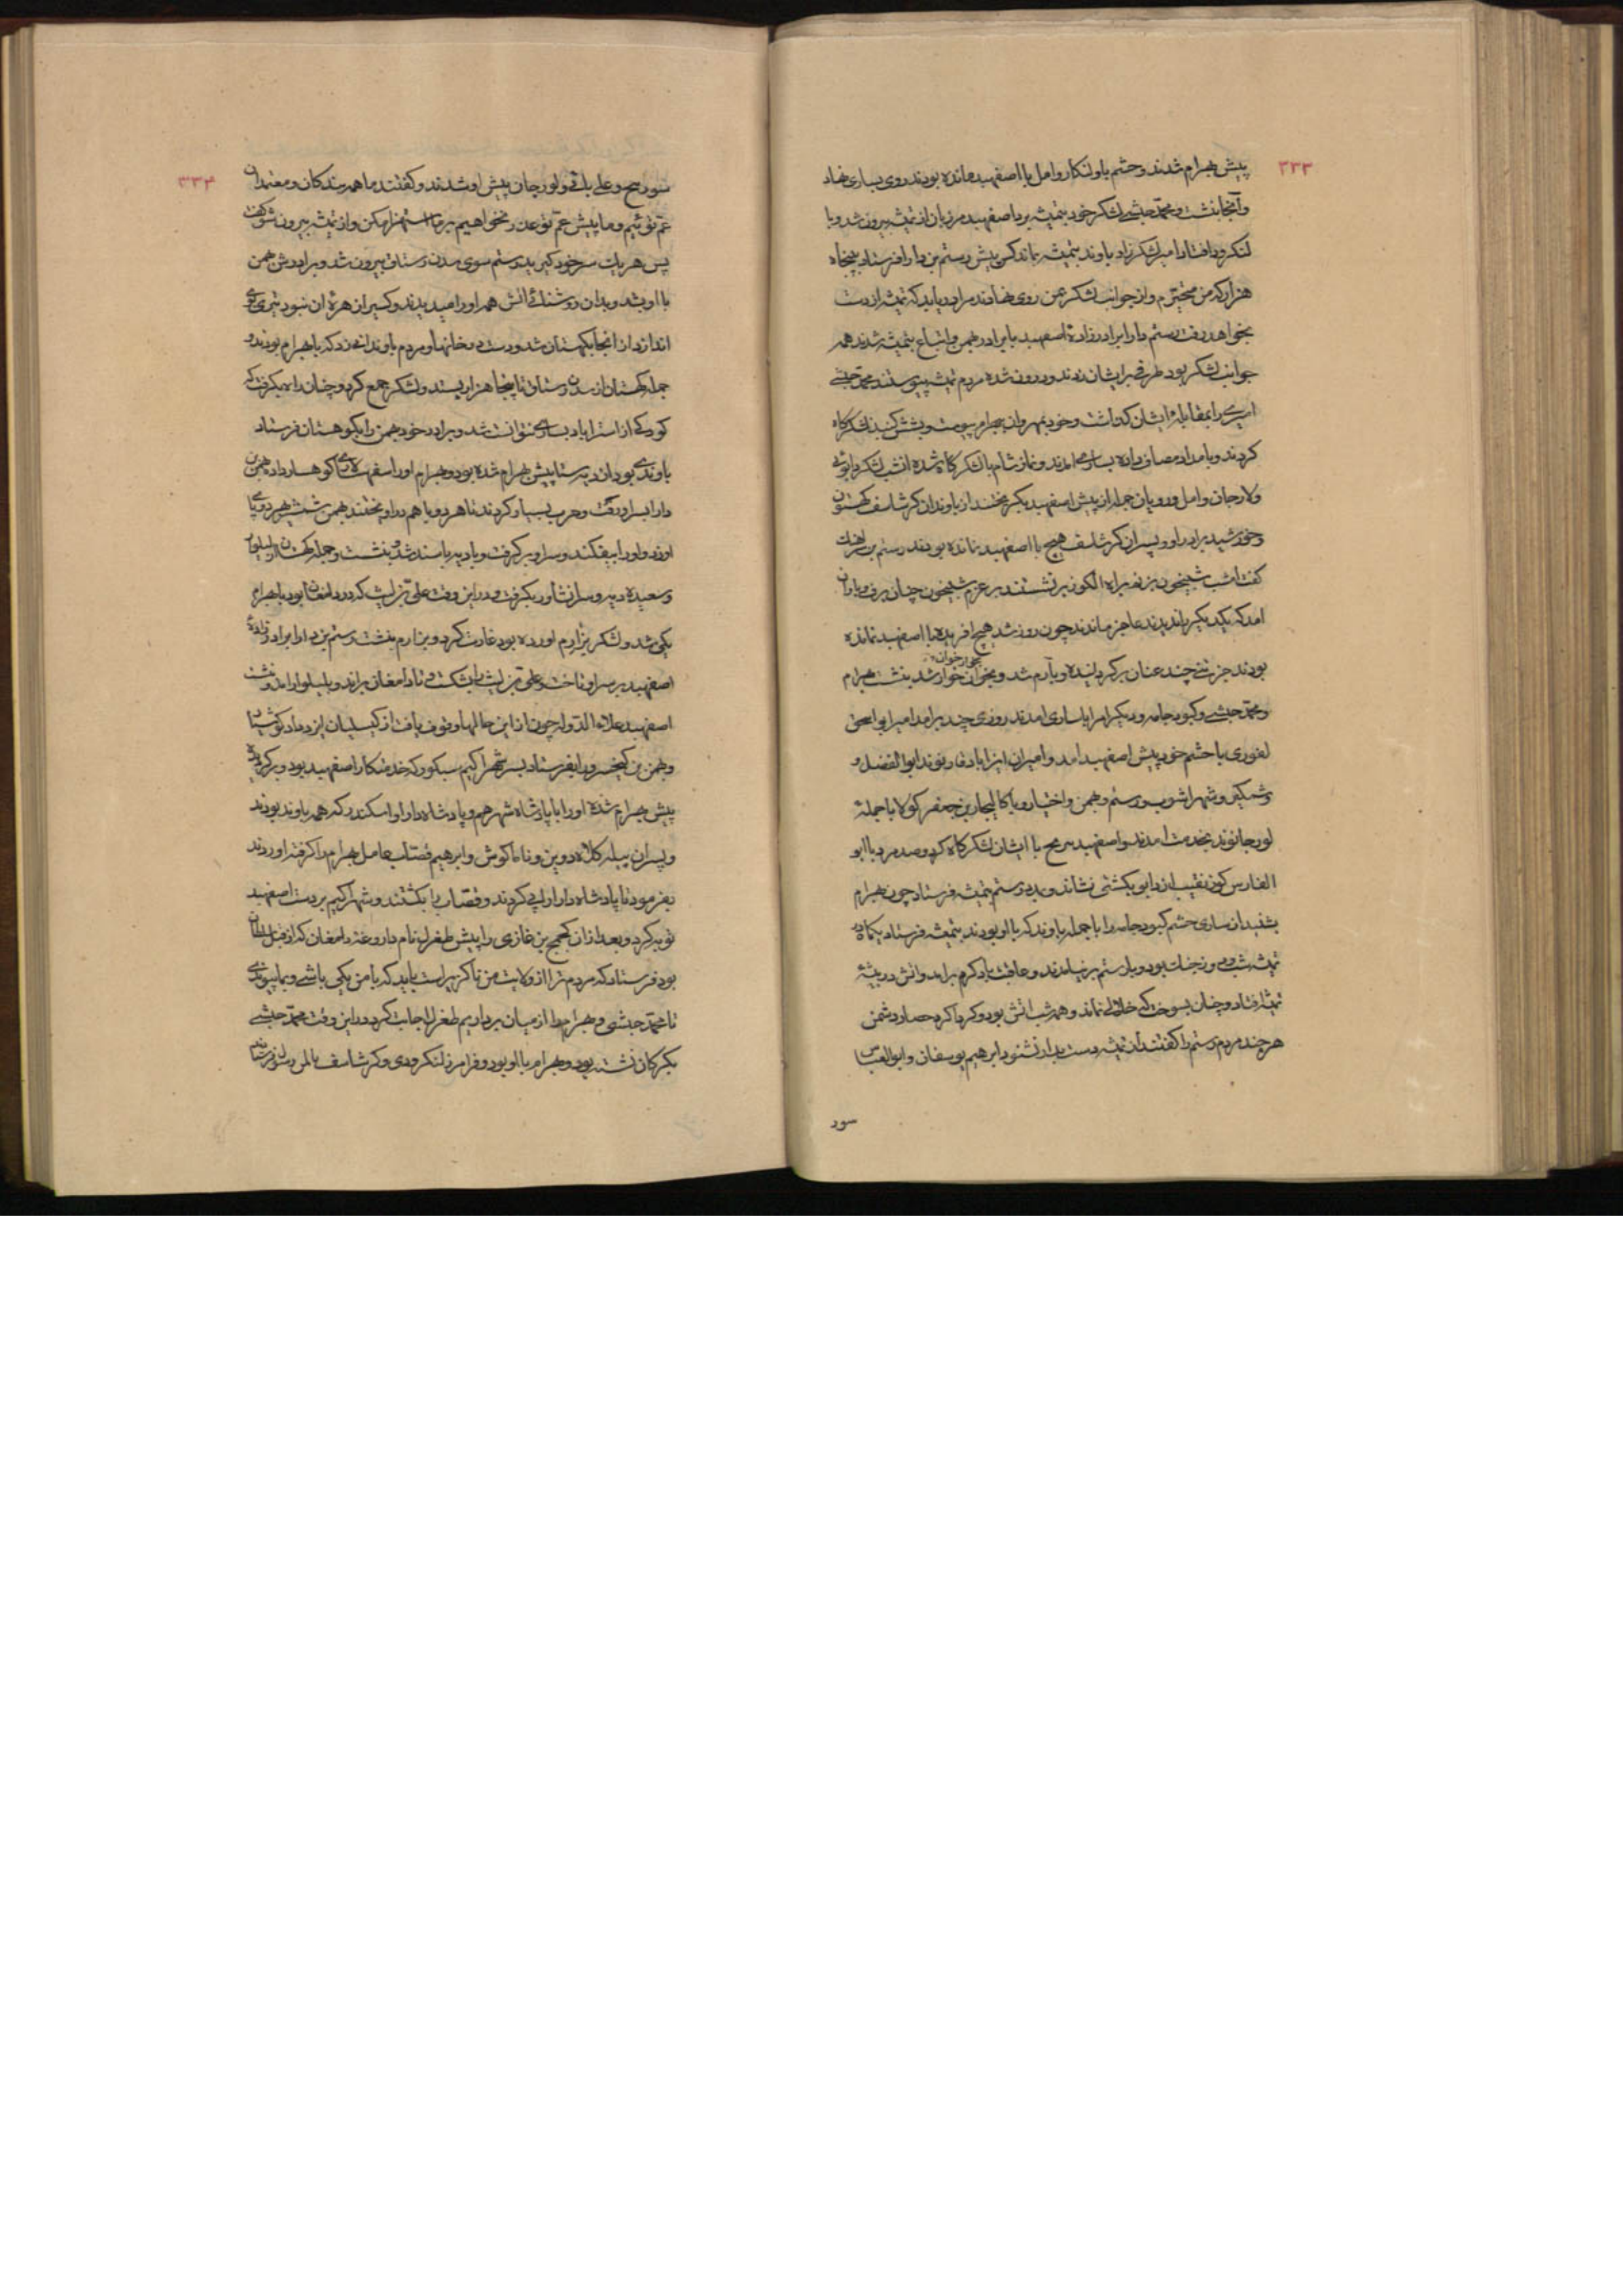 ۳۳۳
پیش بهرام شدند و حشم باولنکار و امل با اصفهبد مانده بودند روی بساری نهاد
و آنجا نشست و محمد حبشی لشکر خود بتمیشه برد اصفهبد مرزبان از تمیشه بیرون شد و با
لنکرود افتاد امیر لشکرزاد باوند بتمیشه بماند کس پیش رستم بن دارا فرستاد پنجاه
هزار که من و از جوانب لشکر بمن روی نهادند مرا دریابد که تمیشه از دست
بخواهد رفت رستم دارا برادرزادهٔ اصفهبد با برادر بهمن و اتباع بتمیشه شدند همه
جوانب لشکر بود طرقی بر ایشان زدند و درون شده مردم تمیشه پیوستند و محمد حبشی
امیری را بمقابله ایشان کذاشت و خود بمهروان بهرام پیوست و بشش کنبد لشکرکاه
کردند و بامداد مصاف داده بساری امدند و نماز شام با لشکرکاه شده انشب لشکر
ولارجان و امل و رویان جمله از پیش اصفهبد بکریختند از باوندان کرشاسف
و خورشید برادر او و پسران کرشاسف هیچ با اصفهبد نمانده بودند رستم بن
کفت امشب شبیخون بریم براه الکو بر نشستند بر عزم شبیخون چنان برف و باران
امد که یکدیکر باندیدند عاجز ماندند چون روز شد هیچ افریده با اصفهبد نمانده
بودند جز تنی چند عنان بر کردانیده و بآرم شد و بخوان خوار شد بنشست بهرام
و محمد حبشی و کبود جامه و دیکر امرا بساری امدند روزی چند بر امد امیر ابو اسحق
لفوری با حشم خود پیش اصفهبد امد و امیران ایزاباد قارنوند ابوالفضل و
وشمکیر و شهراشوب و رستم و بهمن و اختیار و باکالیجار بن جعفر کولا با جملهٔ
لورجانوند بخدمت امدند و اصفهبد با ایشان لشکرکاه کرد و صد مرد با ابو
الفارس کوزنقیب از بکشتی نشاند و بمدد رستم بتمیشه فرستاد چون بهرام
بشنید از ساری حشم کبود جامه را با جمله باوند که با او بودند بتمیشه فرستاد یکماه
تمیشه شب و روز جنک بود و با رستم بر نیامدند و عاقبت باد کرم بر امد و اتش در بیشهٔ
تمیشه افتاد و چنان بسوخت که خلالی نماند و همه شب اتش بود و کرداکرد حصار دشمن
هر چند مردم رستم را کفتند از تمیشه دست بدار نشنود ابرهیم یوسفان و ابوالعباس
سور
۳۳۴
سورج و علی باقی ولورجان پیش او شدند و کفتند ما همه بندکان و معتمدان
عم توئیم و ما پیش عم تو عذر نخواهیم بر ما استهزا مکن و از تمیشه بیرون شو کفت
پس هریک سر خود کیرید رستم سوی رستاق بیرون شد و برادرش بهمن
با او بشد و بدان روشنائی اتش همه او را میدیدند و کس را زهرهٔ ان نبود
اندازد از انجا بکهستان شد و دست در خانها و مردم باوندانه زد که با بهرام بودند و
جمله کهستان از رستاق تا پنجاه هزار بستد و لشکر جمع کرد و چنان راه بکرفت که
کودکی از استراباد بساری نتوانست شد و برادر خود بهمن را بکوهستان فرستاد
باوندی بود از پیش بهرام شده بود و بهرام او را اسفهسلاری کوهسار داد بهمن
دارا بسر او رفت و حرب بسیار کردند تا هر دو با هم در اویختند بهمن شمشیر
او زد و او را بیفکند و سر او بر کرفت و با شد و بنشست و جمله کهستان
و سعیده بکرفت و در این وقت علی که در دامغان بود با بهرام
یکی شد و لشکر بزارم اورده بود غارت کرد و بزارم بنشست رستم بن دارا برادرزادهٔ
اصفهبد بر سر او تاخت و علی را بشکست و تا دامغان براند و امد و بنشست
اصفهبد علاء الدوله چون از این حالها وقوف یافت از کیسلیان
و بهمن بن کیخسرو را بفرستاد بسر شهراکیم که خدمتکار اصفهبد بود و برکردیده
پیش بهرام شده او را با پادشاه شهرهم و پادشاه داراو اسکندر که همه باوند بودند
و پسران و ناماکوش و ابرهیم قصاب عامل بهرام را کرفته اوردند
بفرمود تا پادشاه داراو را پی کردند و قصاب را بکشتند و شهراکیم بر دست اصفهبد
توبه کرد و بعد از ان کمج بن غازی را پیش طغرل نام داروغه دامغان که از قبل سلطان
بود فرستاد که مردم ترا از ولایت من ناکزیر است باید که با من یکی باشی و بما پیوندی
تا محمد حبشی و بهرام را از میان برداریم طغرل اجابت کرد در این وقت محمد حبشی
بکرکان نشسته بود و بهرام با او بود و فرامرز لنکرودی و کرشاسف